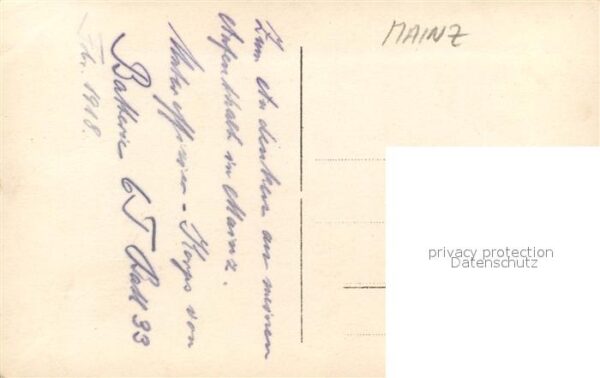 MAINZ
Zum Andenken an meinen
Aufenthalt in Mainz.
Unteroffizier-Korps von
Batterie 65 Batl 33
Febr. 1918.
privacy protection
Datenschutz